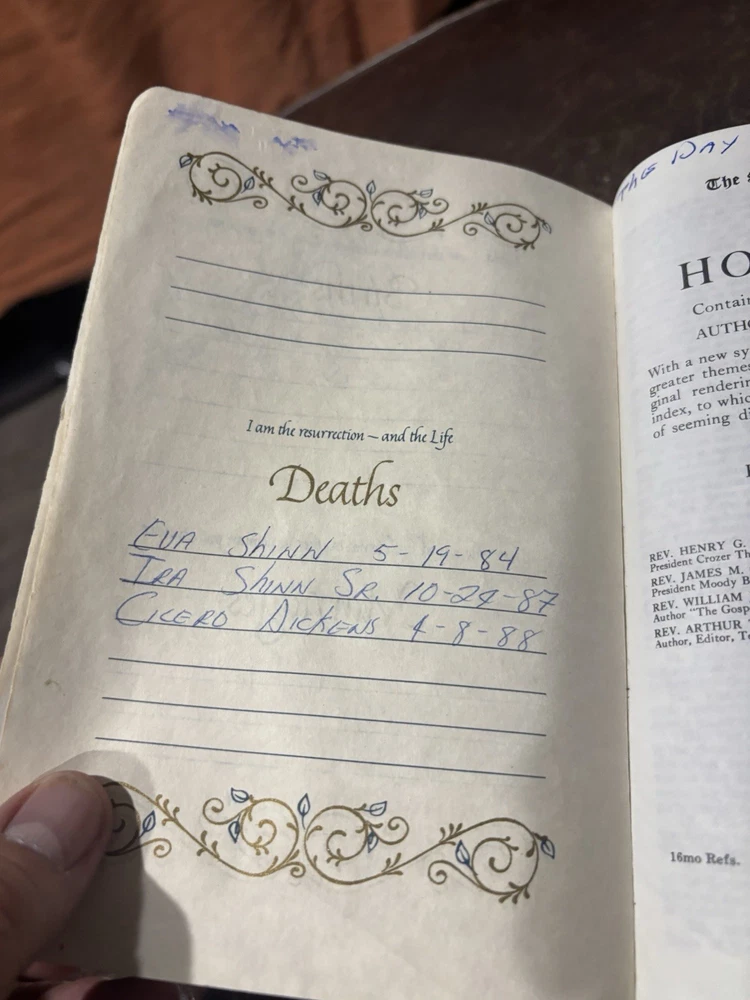 I am the resurrection – and the Life
Deaths
EVA SHINN 5-19-84
IRA SHINN SR. 10-24-87
CICERO DICKENS 4-8-88
THE DAY
The
HO
Contain
AUTHO
With a new sy
greater themes
ginal renderin
index, to whic
of seeming di
REV. HENRY G.
President Crozer Th
REV. JAMES M.
President Moody B
REV. WILLIAM
Author "The Gosp
REV. ARTHUR
Author, Editor, Te
16mo Refs.